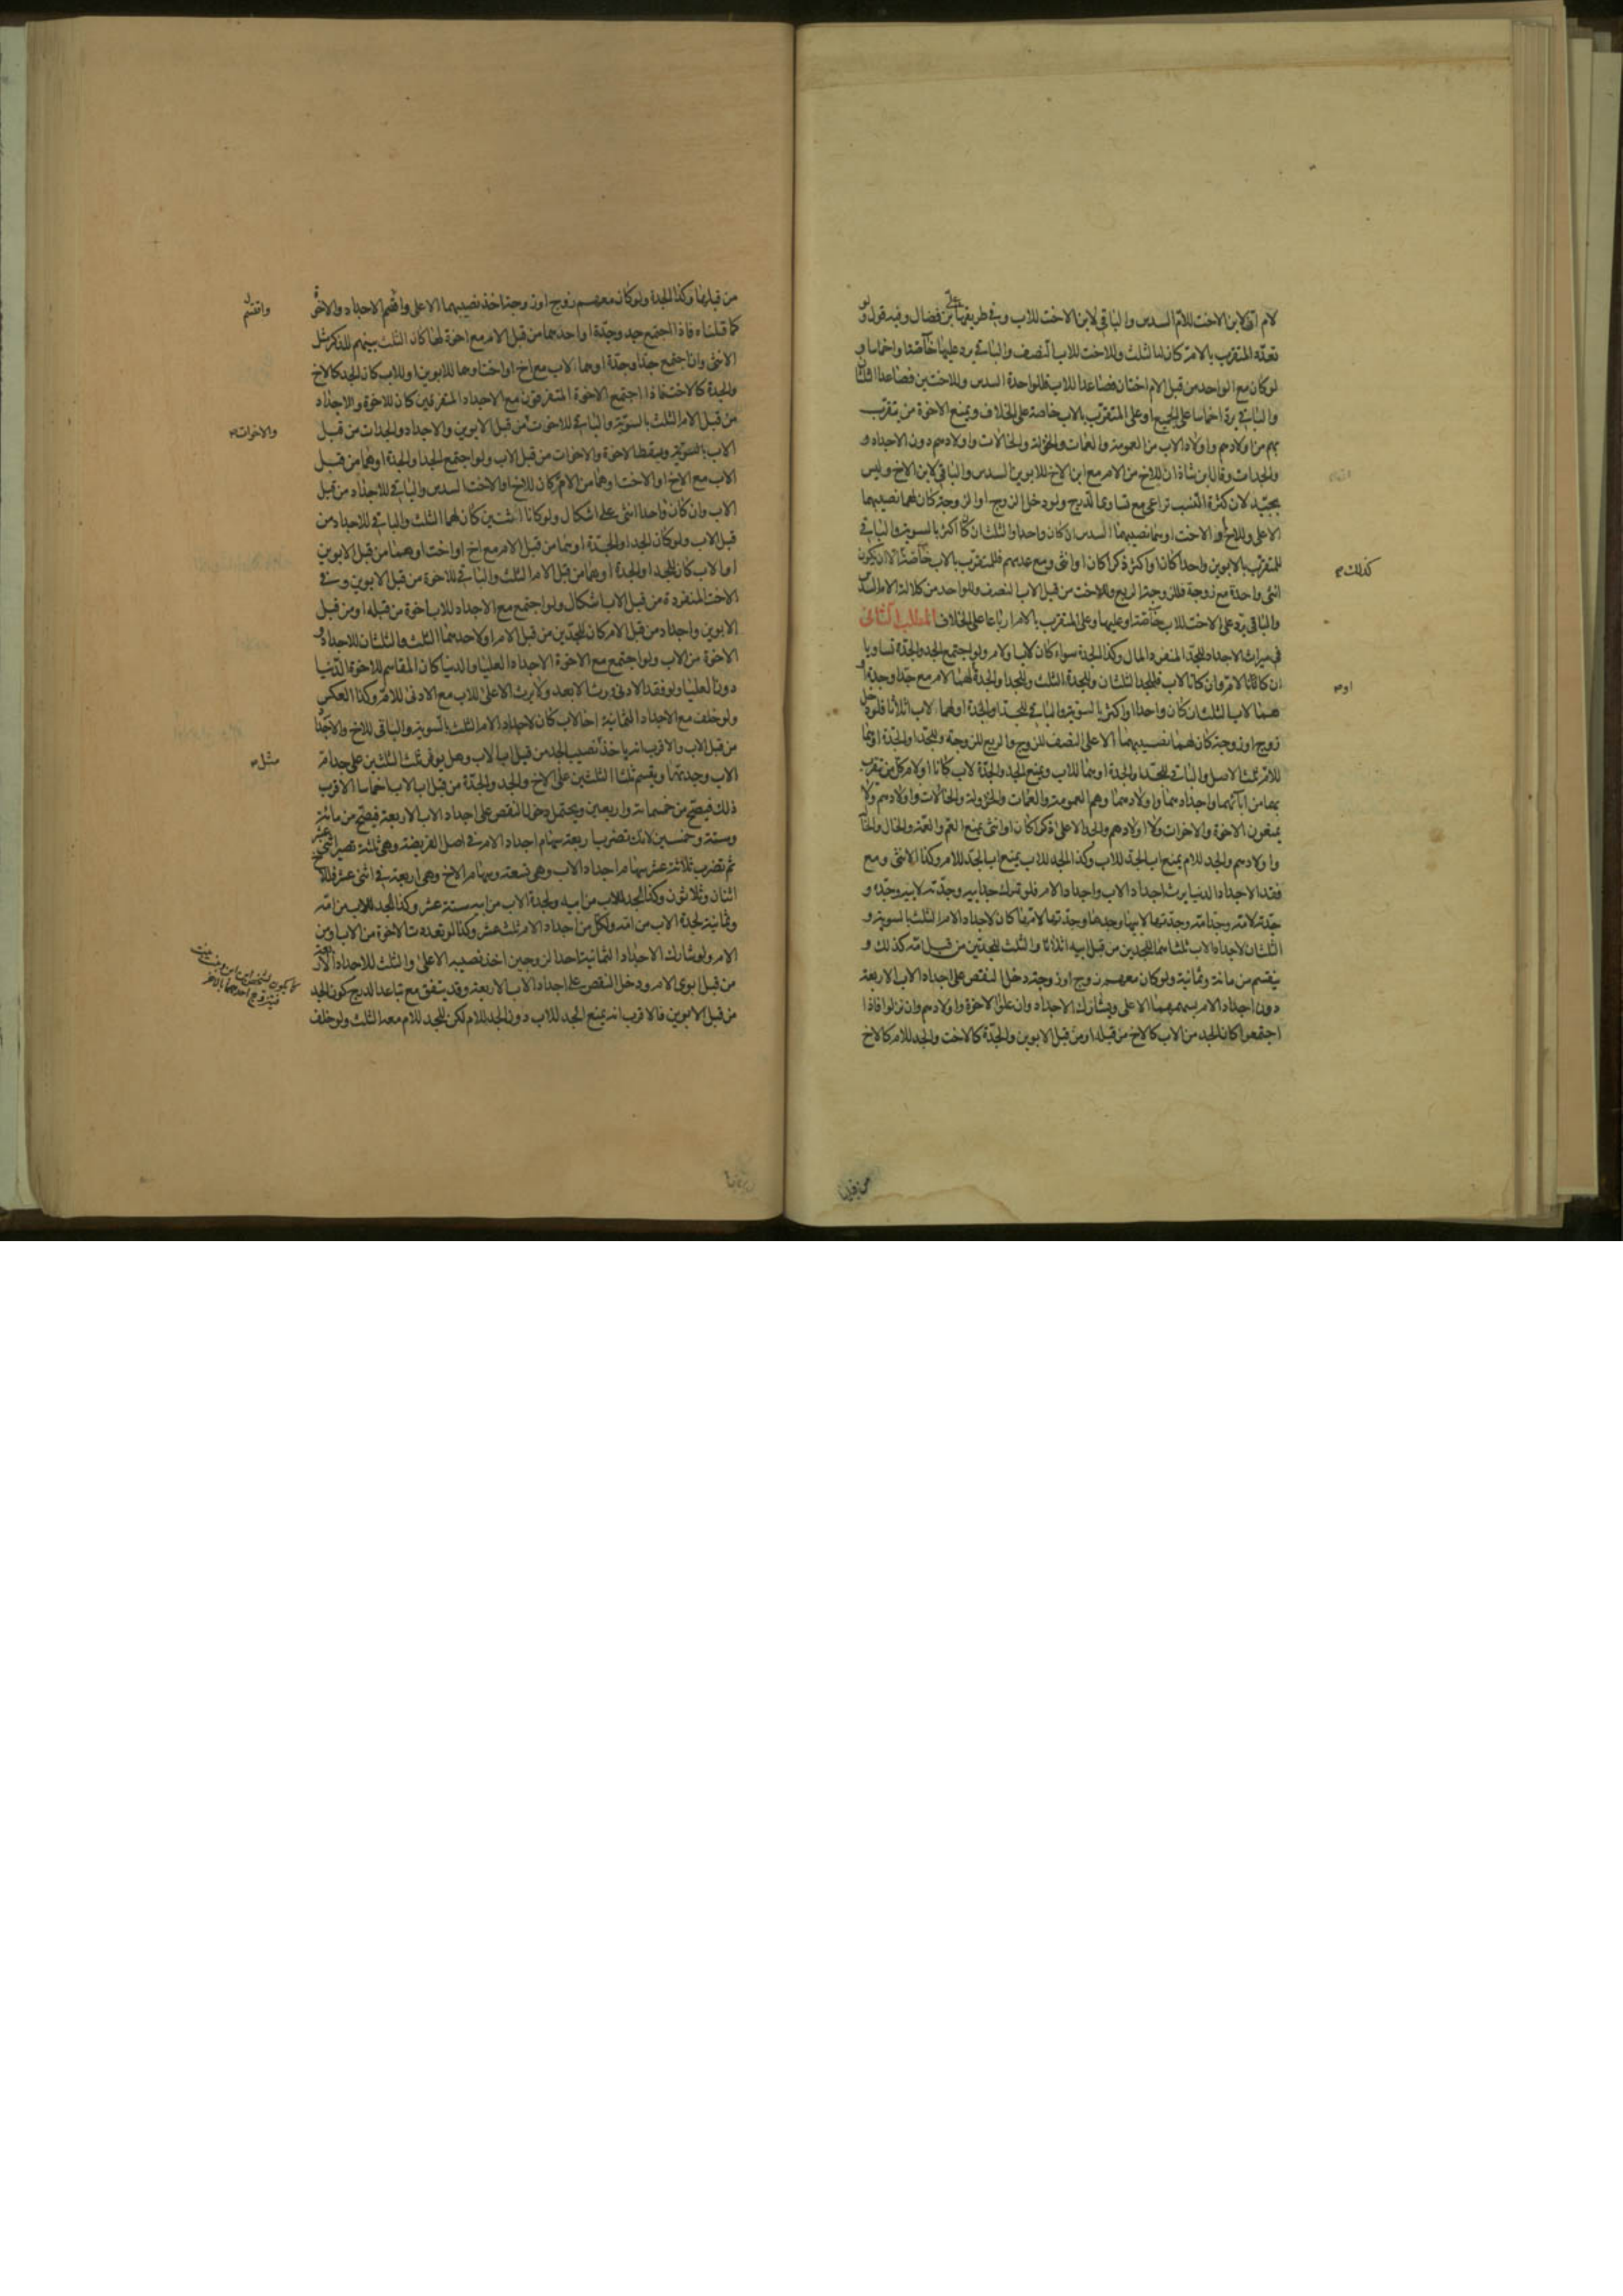 لام ان لابن الاخت للام السدس والباقي لابن الاخت للاب وفي طريقها علي بن فضال وفيه قول ولو
تعدد المتقرب بالام كان لها الثلث وللاخت للاب النصف والباقي يرد عليها خاصة او اخماسا و
لو كان مع الواحد من قبل الام اختان فصاعدا للاب فللواحدة السدس وللاختين فصاعدا الثلثان
والباقي يرد اخماسا على الجميع او على المتقرب بالاب خاصة على الخلاف ويمنع الاخوة من يتقرب
بهم من اولادهم واولاد الاب من العمومة والعمات والخؤلة والخالات واولادهم دون الاجداد و
والجدات وقال ابن شاذان للاخ من الام مع ابن الاخ للابوين السدس والباقي لابن الاخ وليس
بجيد لان كثرة النسب تراعى مع تساوي الدرج ولو دخل الزوج او الزوجة كان لهما نصيبهما
الاعلى وللاخ او الاخت او هما نصيبهما السدس ان كان واحدا والثلث ان كان اكثر بالسوية والباقي
للمتقرب بالابوين واحدا كان او اكثر ذكرا كان او انثى ومع عدمهم فللمتقرب بالاب خاصة الا ان يكون
كذلك
انثى واحدة مع زوجة فللزوجة الربع وللاخت من قبل الاب النصف وللواحد من كلالة الام السدس
والباقي يرد على الاخت للاب خاصة او عليها وعلى المتقرب بالام ارباعا على الخلاف المطلب الثاني
في ميراث الاجداد للجد المنفرد المال وكذا الجدة سواء كان لاب او لام ولو اجتمع الجد والجدة تساويا
ان كانا لام وان كانا لاب فللجد الثلثان وللجدة الثلث وللجد او الجدة لهما الام مع جد او جدة او
او
هما لاب الثلث ان كان واحدا او اكثر بالسوية والباقي للجد او الجدة او لهما لاب اثلاثا فلو دخل
زوج او زوجة كان لهما نصيبهما الاعلى النصف للزوج والربع للزوجة وللجد او الجدة او هما
للام ثلث الاصل والباقي للجد او الجدة او هما للاب ويمنع الجد والجدة لاب كانا او لام كل من يتقرب
بهما من ابائهما واجدادهما واولادهما وهم العمومة والعمات والخؤولة والخالات واولادهم ولا
يمنعون الاخوة والاخوات ولا اولادهم والجد الاعلى ذكرا كان او انثى يمنع العم والعمة والخال والخالة
واولادهم والجد للام يمنع اب الجد للاب وكذا الجد للاب يمنع اب الجد للام وكذا الانثى ومع
فقد الاجداد الدنيا يرث اجداد الاب واجداد الام فلو ترك جد ابيه وجدته لابيه وجده و
جدته لامه وجد امه وجدتها لابيها وجدها وجدتها لامها كان لاجداد الام الثلث بالسوية و
الثلثان لاجداد الاب ثلثا هما للجدين من قبل ابيه اثلاثا والثلث للجدين من قبل امه كذلك و
ينقسم من مائة وثمانية ولو كان معهم زوج او زوجة دخل النقص على اجداد الاب الاربعة
دون اجداد الام بسهمهما الاعلى ويشارك الاجداد وان علوا الاخوة واولادهم وان نزلوا فاذا
اجتمعوا كان الجد من الاب كالاخ من قبله او من قبل الابوين والجدة كالاخت والجد للام كالاخ
من قبلها
من قبلها وكذا الجدة ولو كان معهم زوج او زوجة اخذ نصيبهما الاعلى واقتسم الاجداد والاخوة
واقتسم
كما قلناه فاذا اجتمع جد وجدة او احدهما من قبل الام مع اخوة لها كان الثلث بينهم للذكر مثل
الانثى وان اجتمع جد او جدة او هما لاب مع اخ او اخت او هما للابوين او للاب كان الجد كالاخ
والجدة كالاخت فاذا اجتمع الاخوة المتفرقون مع الاجداد المتفرقين كان للاخوة والاجداد
من قبل الام الثلث بالسوية والباقي للاخوة من قبل الابوين والاجداد والجدات من قبل
والاخوات
الاب بالسوية ويسقط الاخوة والاخوات من قبل الاب ولو اجتمع الجد او الجدة او هما من قبل
الاب مع الاخ او الاخت او هما من الام كان للاخ او الاخت السدس والباقي للاجداد من قبل
الاب وان كان واحدا انثى على اشكال ولو كانا اثنتين كان لهما الثلث والباقي للاجداد من
قبل الاب ولو كان الجد او الجدة او هما من قبل الام مع اخ او اخت او هما من قبل الابوين
او الاب كان للجد او الجدة او هما من قبل الام الثلث والباقي للاخوة من قبل الابوين وفي
الاخت المنفردة من قبل الاب اشكال ولو اجتمع مع الاجداد للاب اخوة من قبله او من قبل
الابوين واجداد من قبل الام كان للجدين من قبل الام او لاحدهما الثلث والثلثان للاجداد و
الاخوة من الاب ولو اجتمع مع الاخوة الاجداد العليا والدنيا كان المقاسم للاخوة الدنيا
دون العليا ولو فقد الادنى ورث الابعد ولا يرث الاعلى للاب مع الادنى للام وكذا العكس
ولو خلف مع الاجداد الثمانية اخا لاب كان لاجداد الام الثلث بالسوية والباقي للاخ والاجداد
من قبل الاب والاقرب انه ياخذ نصيب الجد من قبل اب الاب وهل يوفى ثلث الثلثين على جد ام
مثل
الاب وجدتها ويقسم ثلثا الثلثين على الاخ والجد والجدة من قبل اب الاب اخماسا الاقرب
ذلك فيصح من خمسمائة واربعين ويحتمل دخل النقص على اجداد الاب الاربعة فيصح من مائة
وستة وخمسين لانك تضرب اربعة سهام اجداد الام في اصل الفريضة وهي ثلثة تصير اثنى عشر
ثم تضرب ثلاثة عشر سهام اجداد الاب وهي تسعة وسهام الاخ وهي اربعة في اثنى عشر فللاخ
اثنان وثلاثون وكذا الجد للاب من ابيه ولجدة الاب من ابيه ستة عشر وكذا لجد الاب من امه
وثمانية لجدة الاب من امه ولكل من اجداد الام ثلث عشر وكذا لو تعددت الاخوة من الاب او من
الام ولو شارك الاجداد الثمانية احد الزوجين اخذ نصيبه الاعلى والثلث للاجداد الاربعة
من قبل ابوي الام ودخل النقص على اجداد الاب الاربعة وقد يتفق مع تباعد الدرج كون الجد
من قبل الابوين فالاقرب انه يمنع الجد للاب دون الجد للام لكن للجد للام معه الثلث ولو خلف